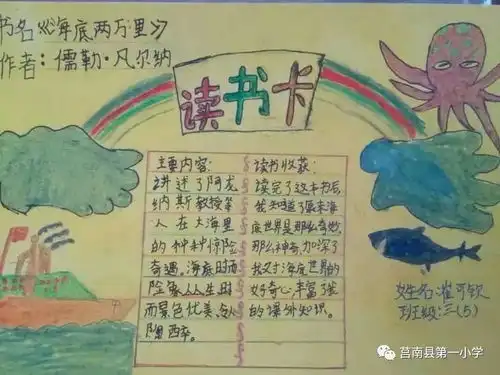 书名《海底两万里》
作者：儒勒·凡尔纳
读书卡
主要内容：
讲述了阿龙
纳斯教授等
人在大海里
的种种惊险
奇遇，海底时而
险象丛生时
而景色优美,令人
陶醉。
读书收获：
读完了这本书后,
我知道了原来海
底世界是那么奇妙
那么神奇,加深了
我对海底世界的
好奇心丰富了我
的课外知识。
姓名:崔可钦
班级:三(5)
莒南县第一小学